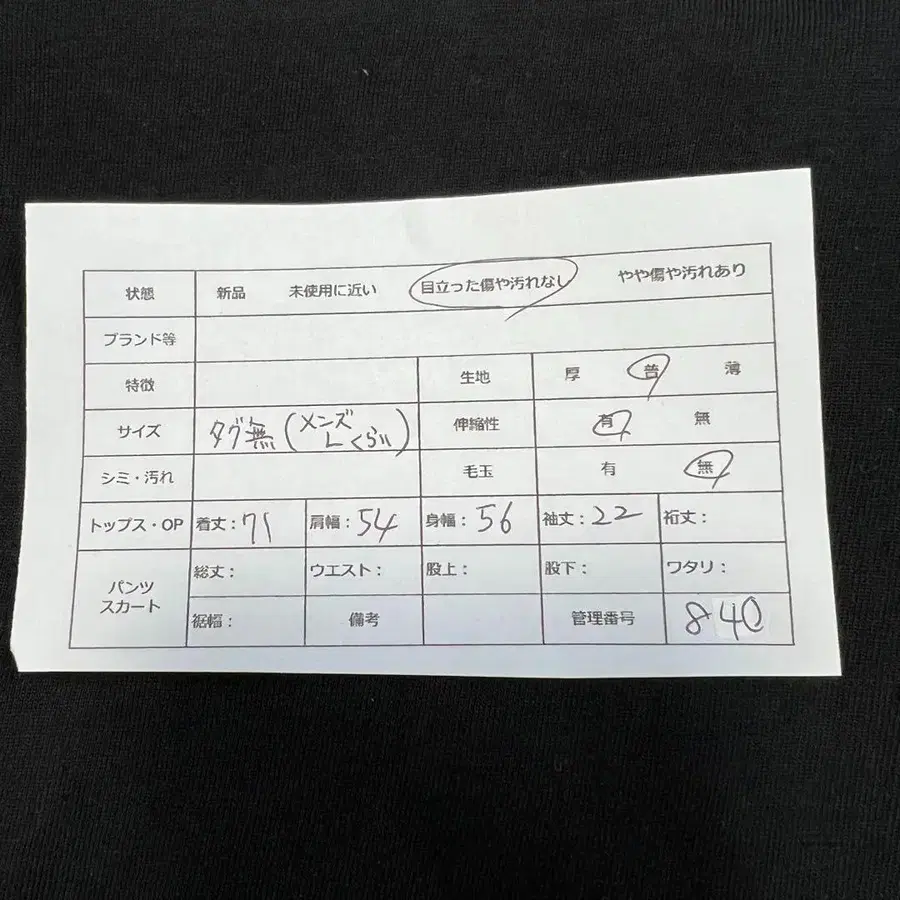 状態 新品 未使用に近い 目立った傷や汚れなし やや傷や汚れあり
ブランド等
特徴 生地 厚 普 薄
サイズ タグ無(メンズLくらい) 伸縮性 有 無
シミ・汚れ 毛玉 有 無
トップス・OP 着丈:71 肩幅:54 身幅:56 袖丈:22 裄丈:
パンツ スカート 総丈: ウエスト: 股上: 股下: ワタリ:
裾幅: 備考 管理番号 840